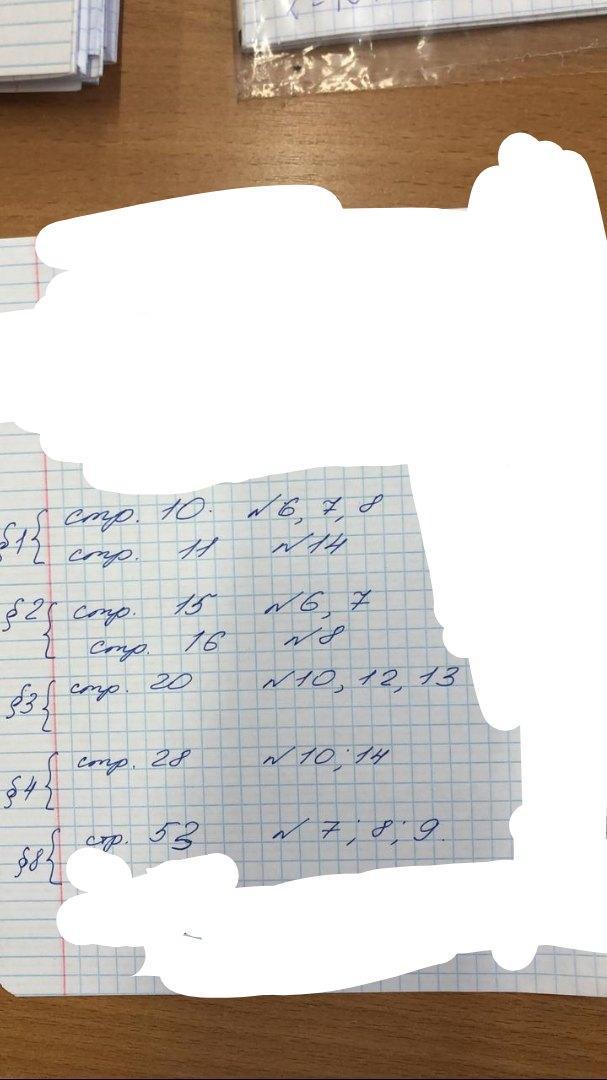 §1{ стр. 10. №6, 7, 8
стр. 11 №14
§2{ стр. 15 №6, 7
стр. 16 №8
§3{ стр. 20 №10, 12, 13
§4{ стр. 28 №10; 14
§8{ стр. 53 № 7; 8; 9.